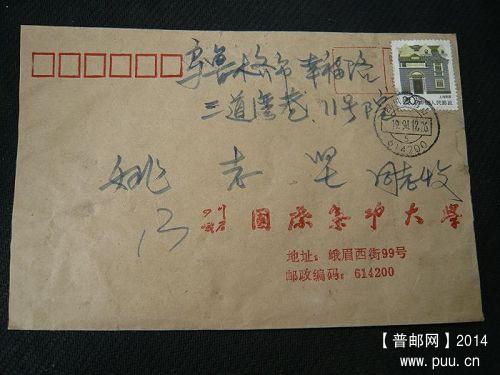 乌鲁木齐市 幸福路
三道湾巷, 11号院
姚 志 坚 同志收
四川
峨眉 国际气功大学
地址: 峨眉西街99号
邮政编码: 614200
20
中国人民邮政
614200
【普邮网】2014
www.puu.cn